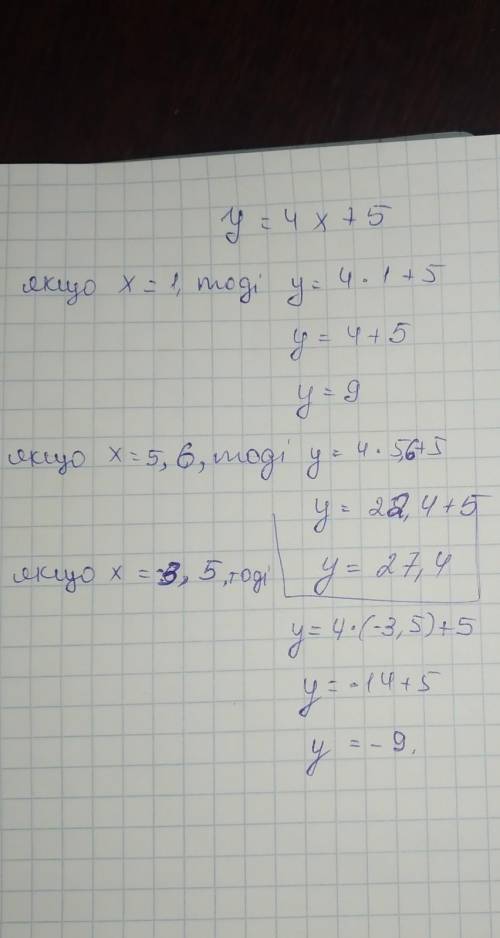 y = 4x + 5
якщо x = 1, тоді y = 4 · 1 + 5
y = 4 + 5
y = 9
якщо x = 5,6, тоді y = 4 · 5,6+5
y = 22,4 + 5
y = 27,4
якщо x = -3,5, тоді
y = 4 · (-3,5) + 5
y = -14 + 5
y = -9.